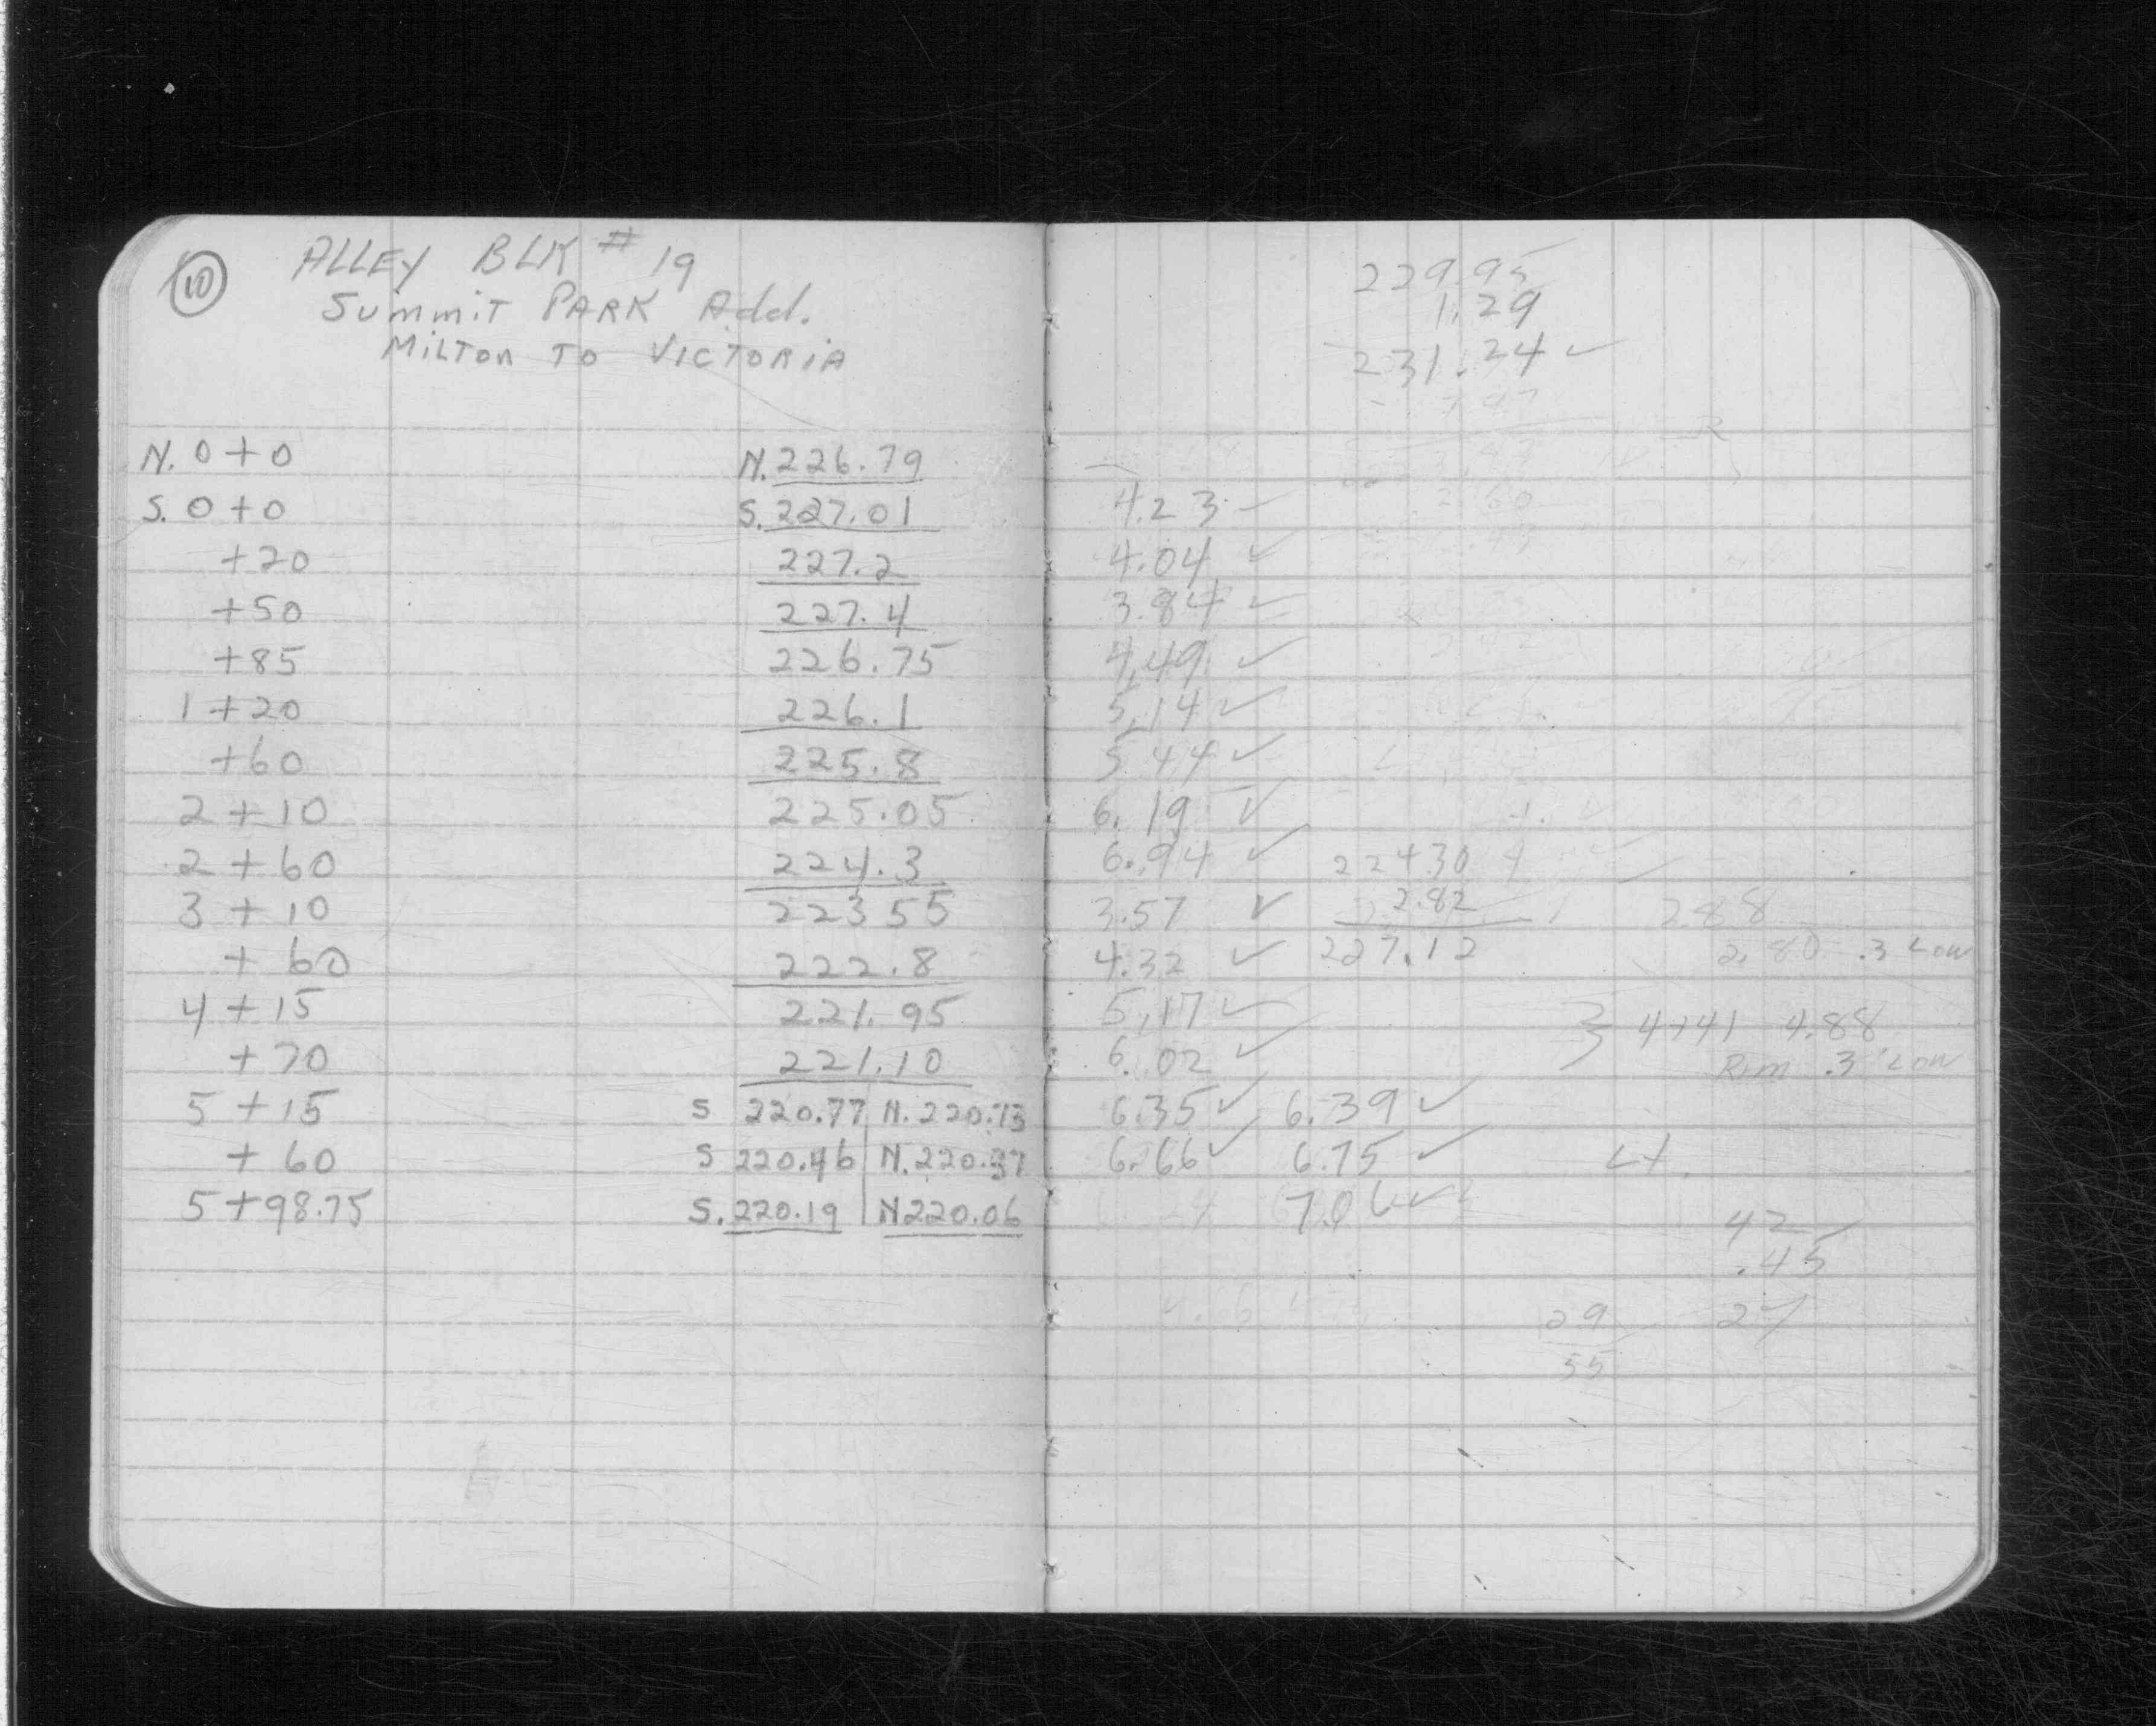 10
ALLEY BLK # 19
Summit PARK Add.
MILTON TO VICTORIA
N. 0+0 N. 226.79
S. 0+0 S. 227.01
+20 227.2
+50 227.4
+85 226.75
1+20 226.1
+60 225.8
2+10 225.05
2+60 224.3
3+10 22355
+60 222.8
4+15 221.95
+70 221.10
5+15 S 220.77 N. 220.73
+60 S 220.46 N. 220.37
5+98.75 S. 220.19 N 220.06
229.95
1.29
231.24 ✓
4.23
4.04 ✓
3.84 ✓
4.49 ✓
5.14 ✓
5.44 ✓
6.19 ✓
6.94 ✓ 224.30
3.57 ✓ 2.82 2.88
4.32 ✓ 227.12 2.80 .3 Low
5.17 ✓ 4+41 4.88
6.02 ✓ Rim .3 Low
6.35 ✓ 6.39 ✓
6.66 ✓ 6.75 ✓
7.06 ✓
42
.45
29
55